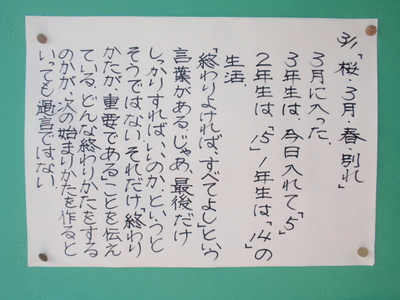 3/1「桜・3月・春・別れ」
3月に入った。
3年生は、今日入れて「5」
2年生は、「15」1年生は「14」の
生活。
「終わりよければ、すべてよし」という
言葉がある。じゃあ、最後だけ
しっかりすればいいのか、というと
そうではない。それだけ「終わり
かたが、重要である」ことを伝え
ている。どんな終わりかたをする
のかが、次の始まりかたを作ると
いっても過言ではない。